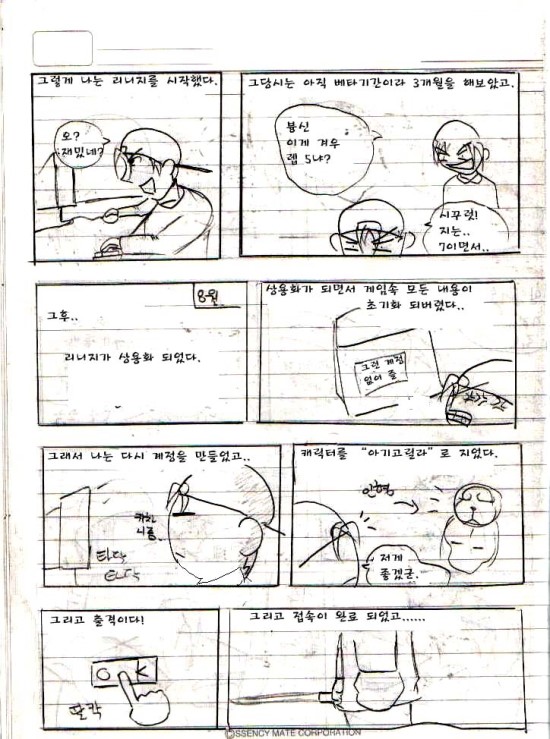 그렇게 나는 리니지를 시작했다.
오?
재밌네?
그당시는 아직 베타기간이라 3개월을 해보았고.
븅신
이게 겨우
렙 5냐?
시꾸럿!
지는..
7이면서..
8월
그후..
리니지가 상용화 되었다.
상용화가 되면서 게임속 모든 내용이
초기화 되버렸다..
그런 계정
없어 즐
그래서 나는 다시 계정을 만들었고..
타닥
타닥
캐릭터를 "아기고릴라"로 지었다.
인형
저게
좋겠군.
그리고 출격이다!
OK
딸칵
그리고 접속이 완료 되었고......
ESSENCY MATE CORPORATION